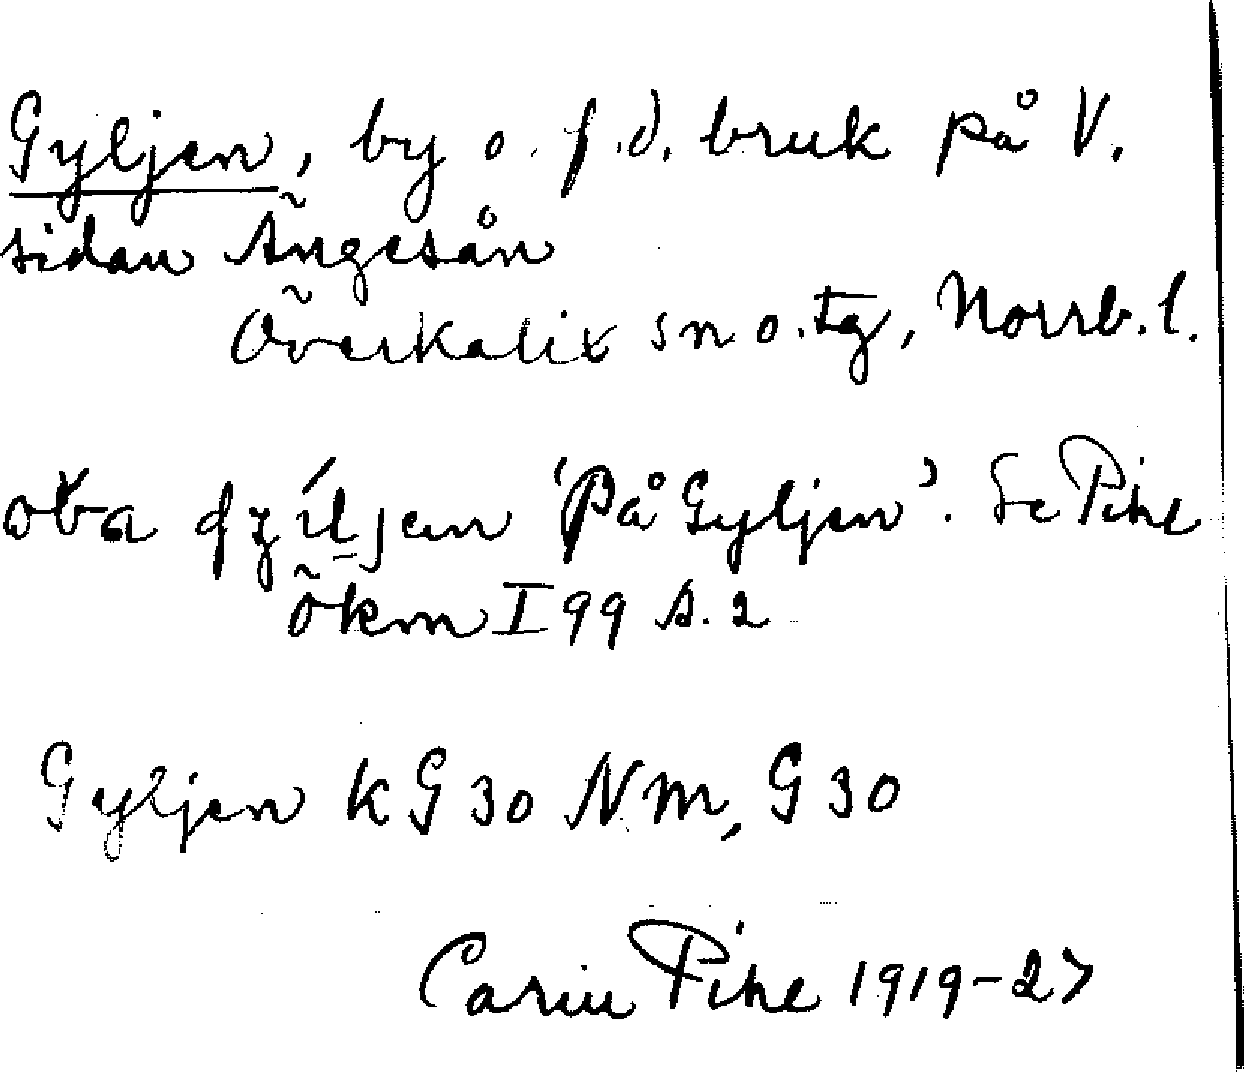 Gyljen, by o. f.d. bruk på V.
sidan Ängesån
Överkalix sn o. tg, Norrb. l.
'På Gyljen'. Se Pihl
Ökm I 99 s. 2
Gyljen k G 30 Nm, G 30
Carin Pihl 1919-27